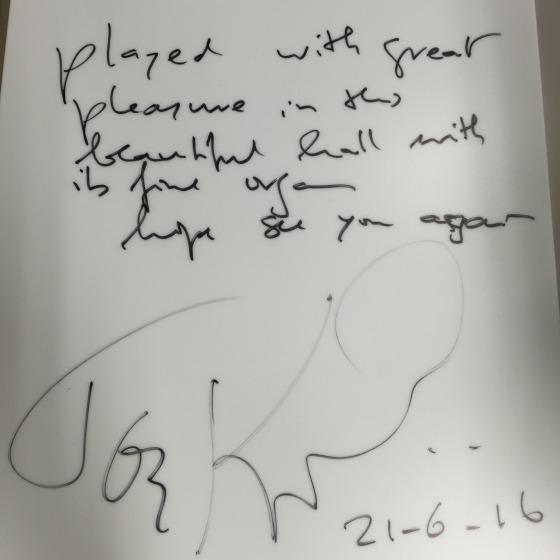 played with great
pleasure in this
beautiful hall with
its fine organ
hope see you again
21-6-16